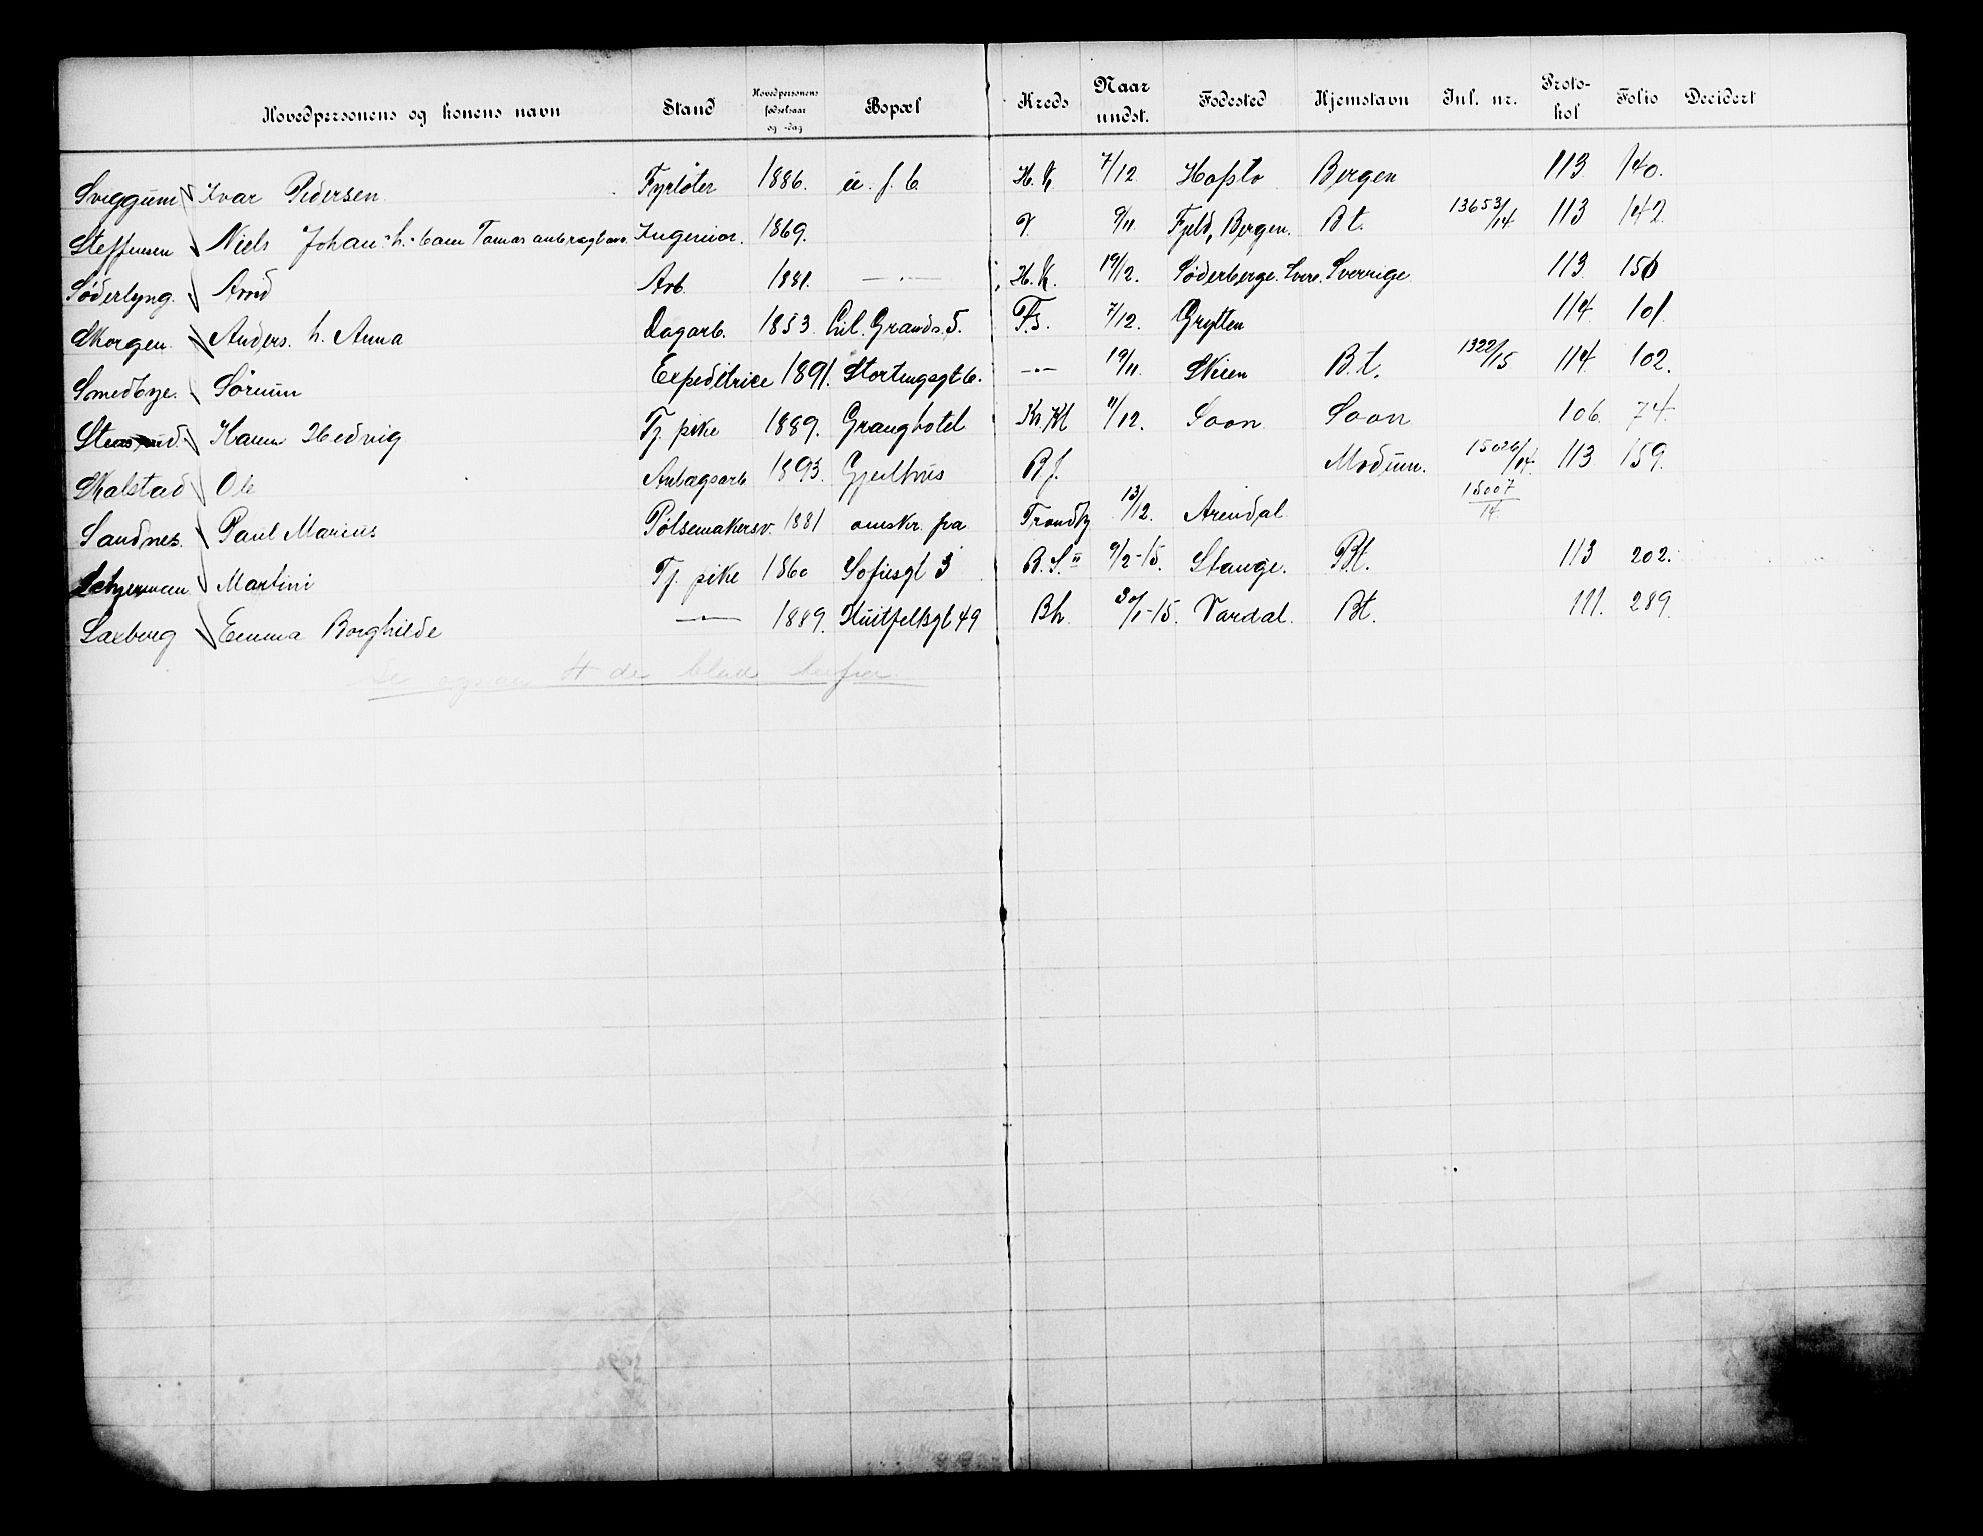 Hovedpersonens og konens navn Stand Hovedpersonens fødselsaar og -dag Bopæl Kreds Naar undst. Fødested Hjemstavn Inl. nr. Protokol Folio Decidert
Sveggum Ivar Pedersen Fyrbøter 1886. u. f. b. H. K. 7/12 Hafslo Bergen 113 140.
Steffensen Niels Johan h. barn Ingeniør. 1869. 9/11. Fjeld, Bergen. Bt. 13653/14 113 142
Søderlyng. Arvid Arb. 1881. — " — H. K. 19/12. Sverrige 113. 150
Skorgen. Anders. h. Anna Dagarb. 1853. Lil. Grænds. 5. F.S. 7/12. Grytten 114. 101
Smedbye. Sørum Expeditrice 1891. Stortingsgt 6. — " — 19/11. Skien B.t. 1322/15 114. 102.
Hanna Hedvig Tj. pike 1889. Granghotel Kr. Kl 11/12. Soon Soon 106. 74.
Skalstad Ole Anlægsarb 1893. Gjeithus B.f. Modum. 15026/14. 113 159.
Sandnes. Paul Marius Pølsemakersv. 1881 omskr. fra Trondhj. 13/12. Arendal 15007/14.
Martini Tj. pike 1860 Sofiesgt 3 B. S. " 9/2-15. Stange. Bt. 113 202.
Saxberg Emma Borghilde — " — 1889. Huitfeltsgt 49 Bh. 30/1-15. Vardal. Bt. 111. 289.
Se ogsaa 4 de blad herfra.